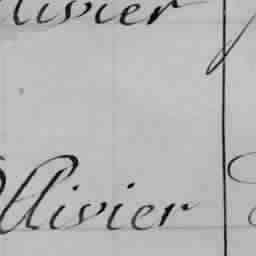 livier
Ollivier